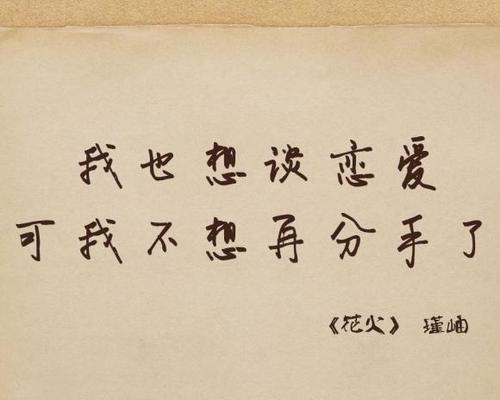 我也想谈恋爱
可我不想再分手了
《花火》 瑾岫